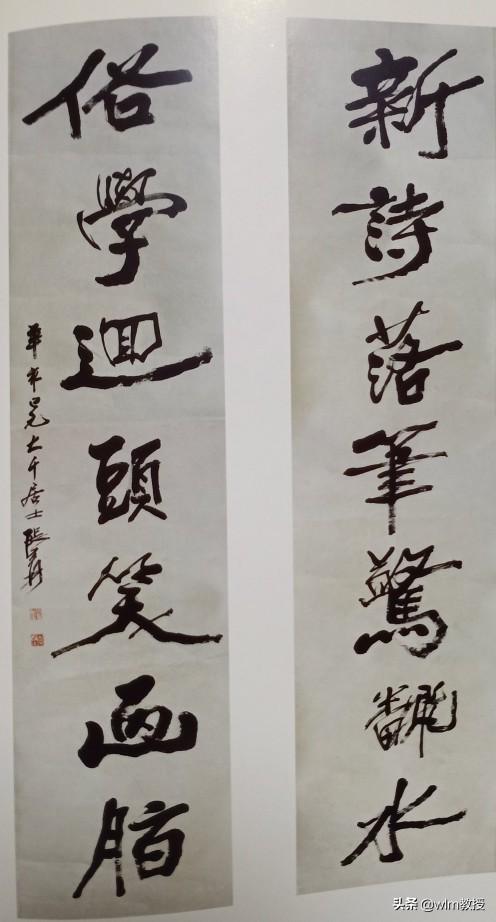 新詩落筆驚飜水
俗學迴頭笑画脂
大千居士張爰
头条 @wlm教授